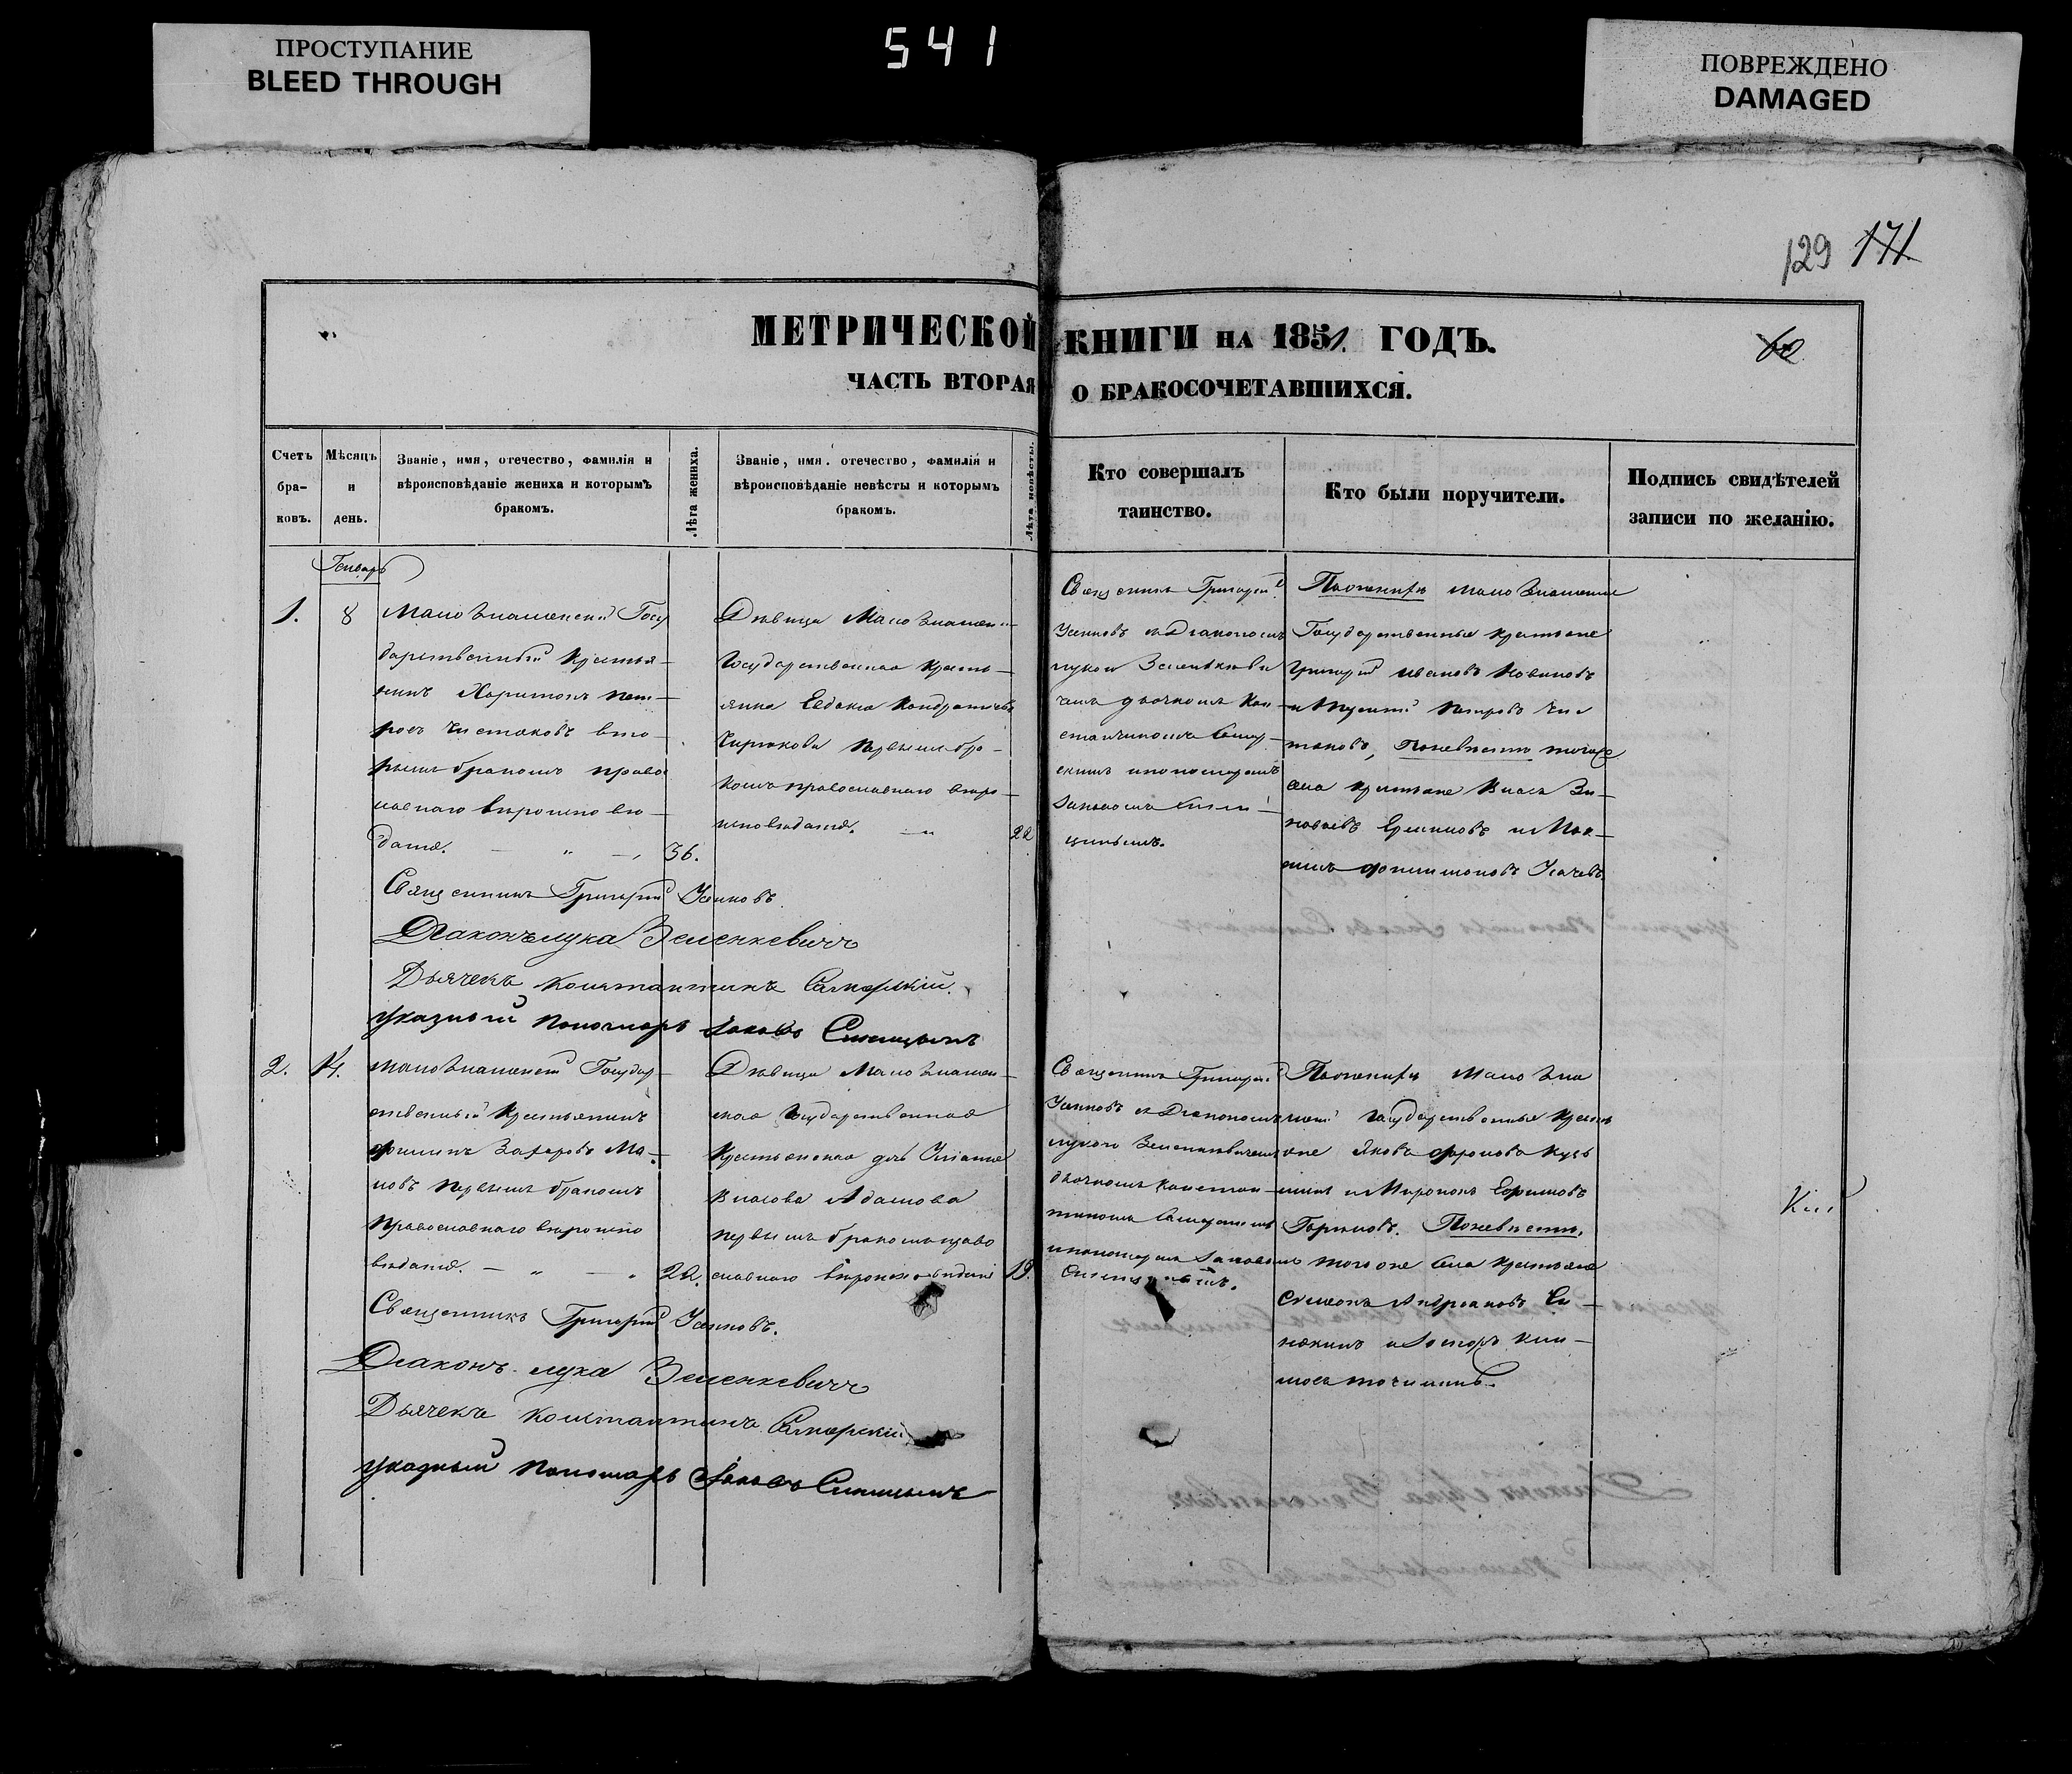 ПРОСТУПАНИЕ
BLEED THROUGH
541
ПОВРЕЖДЕНО
DAMAGED
129 171
МЕТРИЧЕСКОЙ КНИГИ НА 1851 ГОДЪ.
60
ЧАСТЬ ВТОРАЯ О БРАКОСОЧЕТАВШИХСЯ.
Счетъ бра-ковъ.
Мѣсяцъ и день.
Званіе, имя, отечество, фамилія и
вѣроисповѣданіе жениха и которымъ
бракомъ.
Лѣта жениха.
Званіе, имя. отечество, фамилія и
вѣроисповѣданіе невѣсты и которымъ
бракомъ.
Лѣта невѣсты.
Кто совершалъ
таинство.
Кто были поручители.
Подпись свидѣтелей
записи по желанію.
Генварь
1.
8
Мало Знаменскій Госу
дарственный Крестья-
нинъ Харитонъ Пет-
ровъ Чистаковъ вто-
рымъ бракомъ право
славнаго вѣроисповѣ-
данія.
36.
Дѣвица Мало Знамен-
Государственная кресть-
янка Евдокія Кондратьева
первымъ бра-
комъ православнаго вѣро-
исповѣданія.
22
Священникъ Григорій
Усиковъ съ Діакономъ
Лукою Зеленкеви
чемъ дьячкомъ Кон-
стантиномъ
и пономаремъ
Іаковомъ Сини-
цинымъ.
По женихѣ Мало Знаменскіе
Государственные крестьяне
Григорій Ивановъ Новиковъ
и Петровъ Чис
таковъ, по невѣстѣ того же
села крестьяне Власъ Зи-
новьевъ и Мак-
симъ Усачевъ
Священникъ Григорій Усиковъ.
Діаконъ Лука Зеленкевичъ
Дьячекъ Константинъ
указный Пономарь Іаковъ Синицынъ
2.
14.
Мало Знаменскій Государ-
ственный Крестьянинъ
Филипъ Захаровъ Ма-
ковъ первымъ бракомъ
Православнаго вѣроиспо
вѣданія.
22.
Дѣвица Мало Знамен-
ская Государственная
Крестьянская дочь
Власова Адамова
первымъ бракомъ право
славнаго вѣроисповѣданія
19.
Священникъ Григорій
Усиковъ съ Діакономъ
Лукою Зеленкевичемъ
дьячкомъ Констан-
тиномъ
и пономаремъ Іаковомъ
Синицынымъ.
По женихѣ Мало Зна
менскіе Государственные кресть
яне Яковъ Фроловъ Кузь
минъ и Миронъ Ефимовъ
По невѣстѣ,
того же села крестьяне
Симеонъ Андреановъ Си-
някинъ и
Священникъ Григорій Усиковъ.
Діаконъ Лука Зеленкевичъ
Дьячекъ Константинъ
указный Пономарь Іаковъ Синицынъ